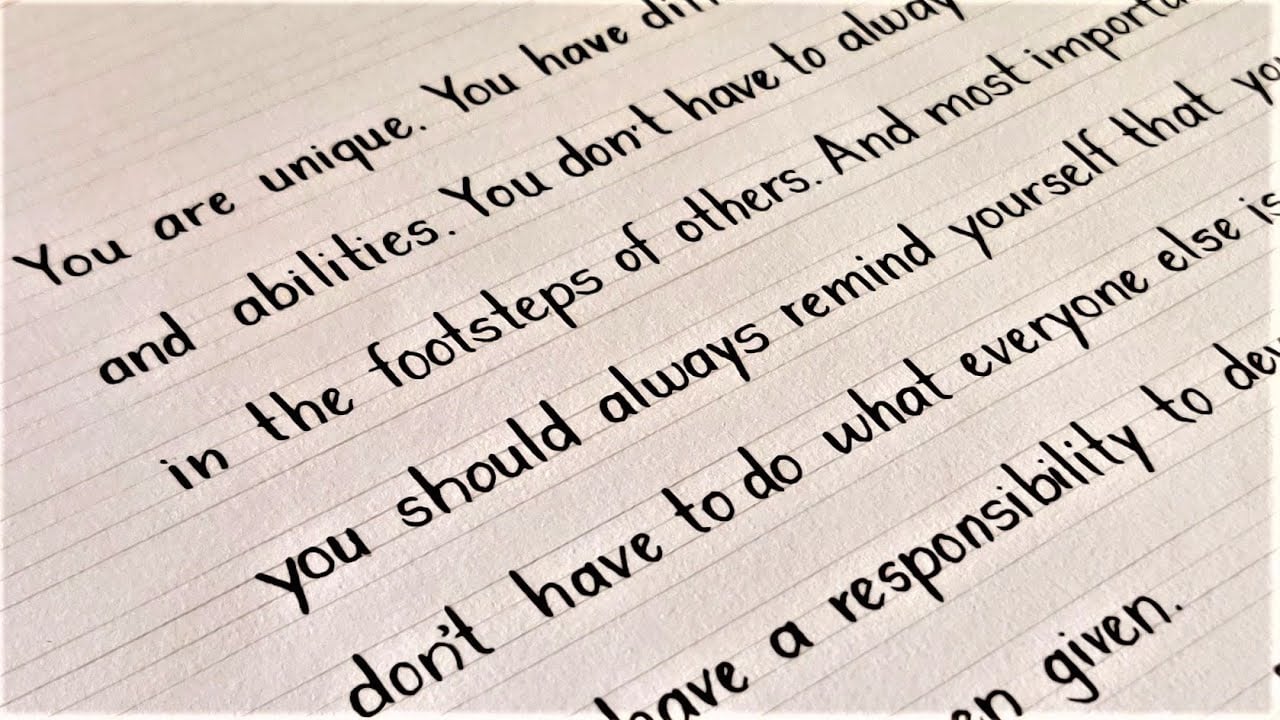 You are unique. You have
and abilities. You don't have to
in the footsteps of others. And most
you should always remind yourself that
don't have to do what everyone else is
have a responsibility to
given.